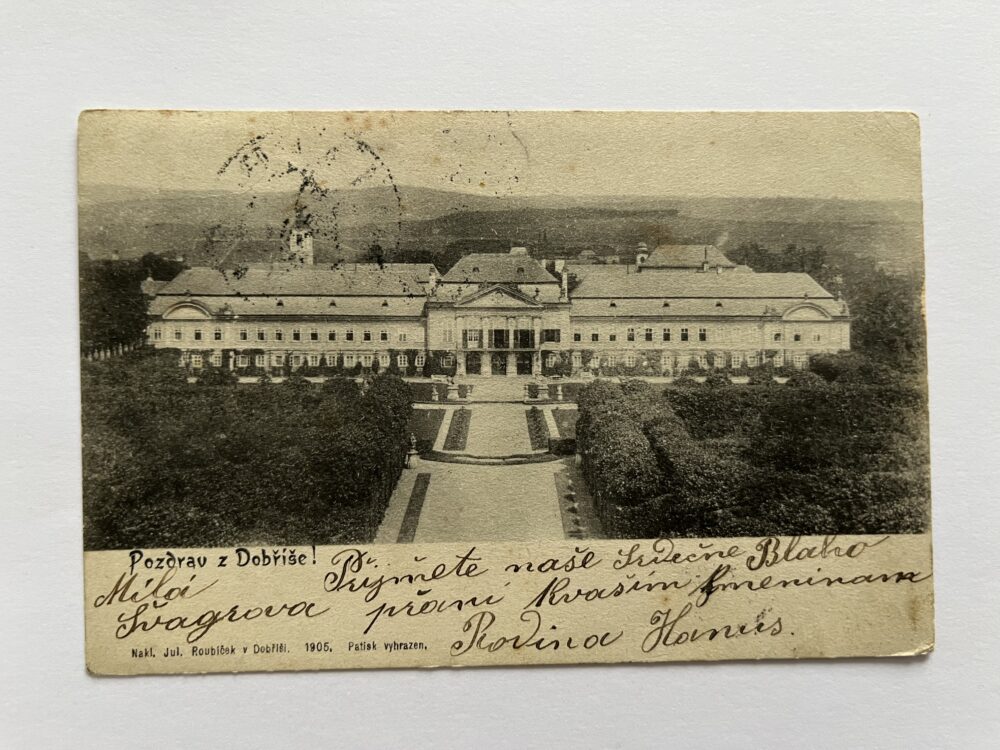 Pozdrav z Dobříše!
Milá Přijměte naše Srdečne Blaho
Švagrova přání kvašim Jmeninam
Rodina Hanuš.
Nakl. Jul. Roubíček v Dobříši. 1905. Patisk vyhrazen.